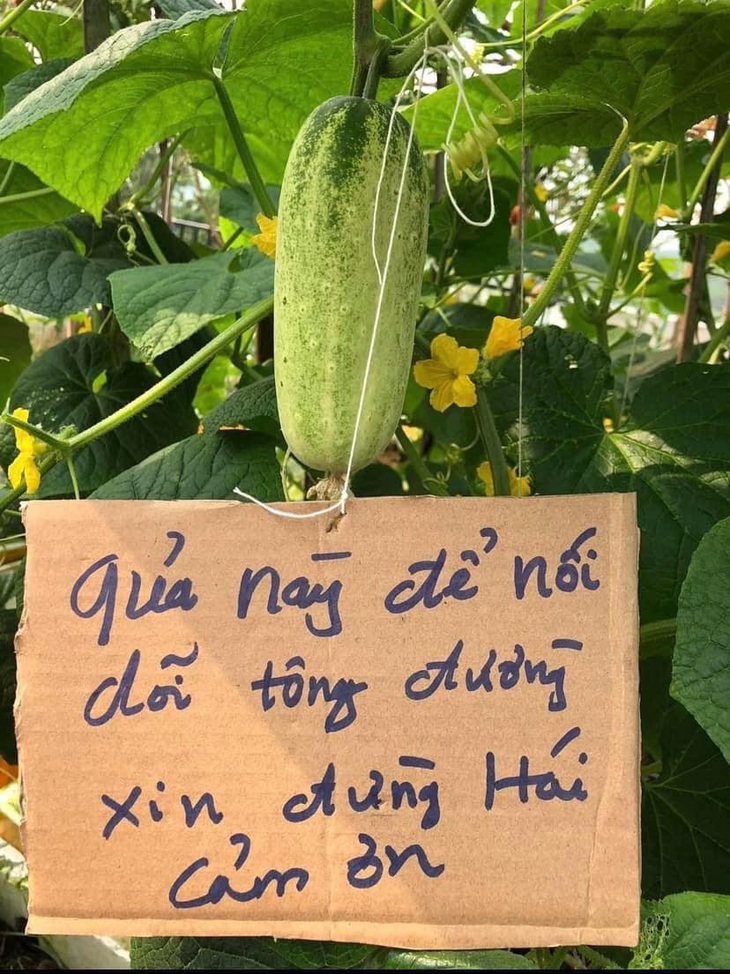 Qủa này để nối
dõi tông đường
xin đừng Hái
Cảm ơn